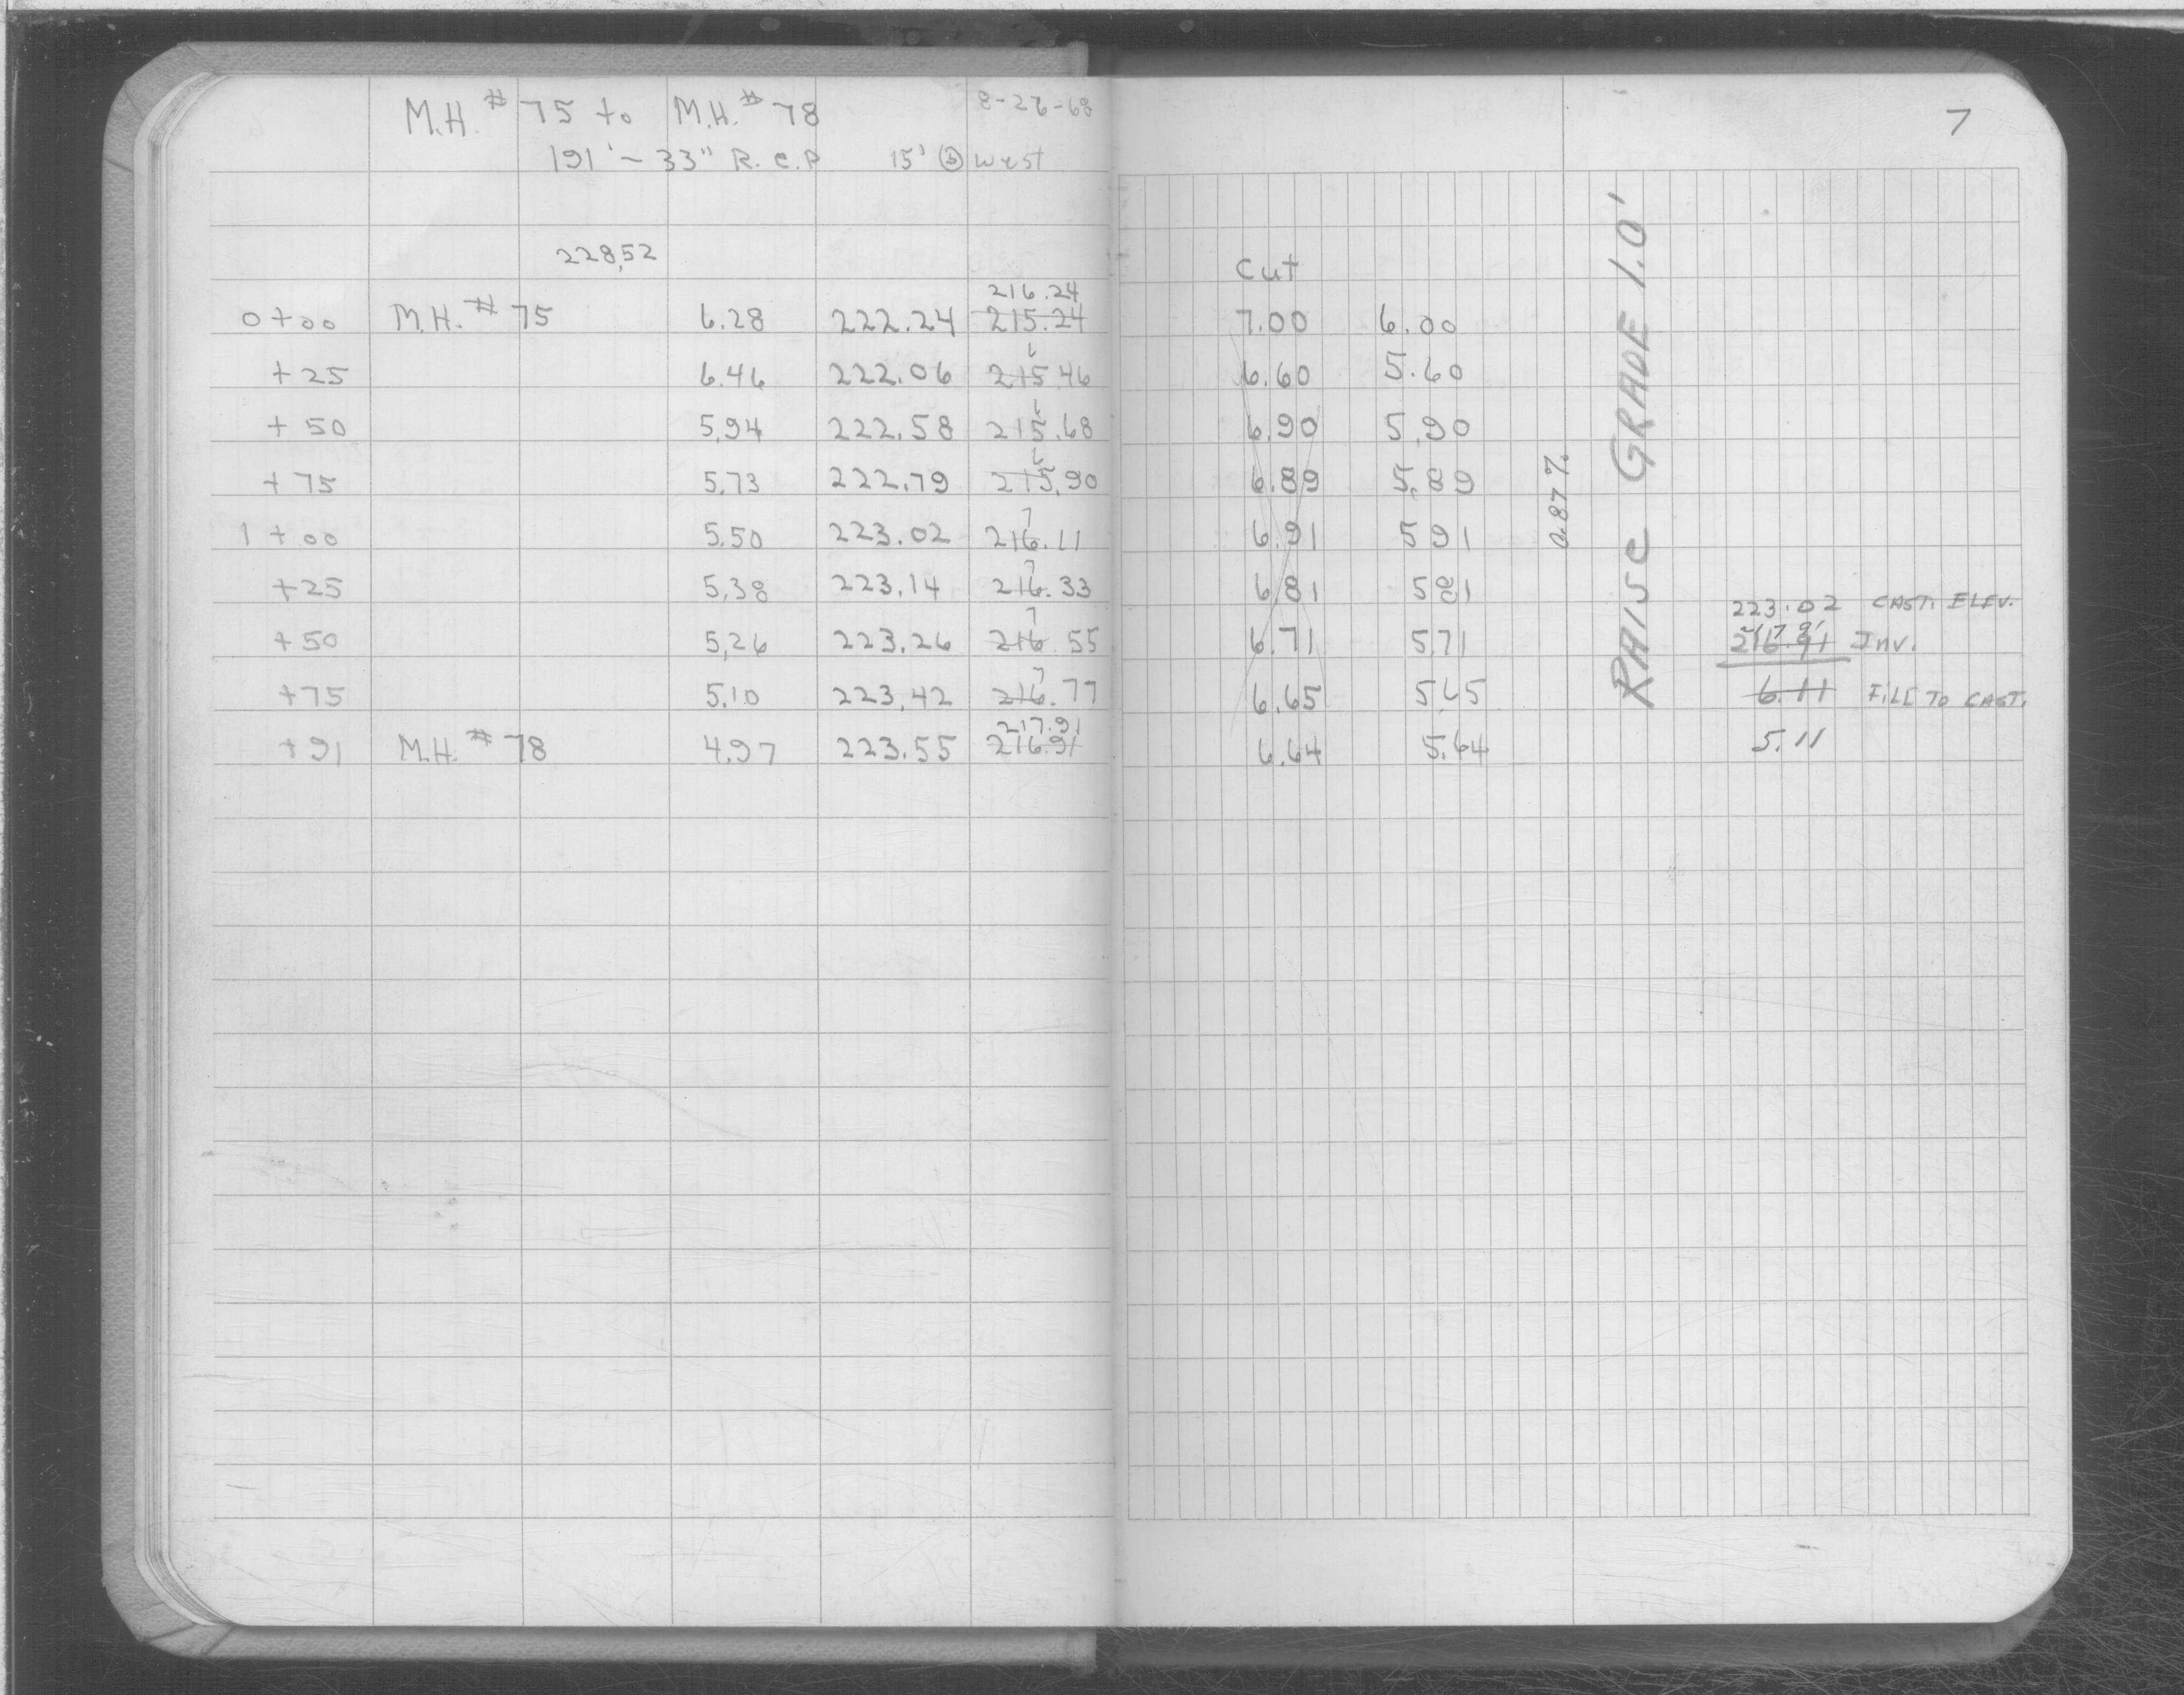 M.H. # 75 to M.H. # 78 8-26-68
191' ~ 33" R.C.P 15' West
228.52
Cut
216.24
0+00 M.H. # 75 6.28 222.24 215.24 7.00 6.00
+25 6.46 222.06 215.46 6.60 5.60
+50 5.94 222.58 215.68 6.90 5.90
+75 5.73 222.79 215.90 6.89 5.89
1+00 5.50 223.02 216.11 6.91 591
+25 5.38 223.14 216.33 6.81 581
+50 5.26 223.26 216.55 6.71 571
+75 5.10 223.42 216.77 6.65 5.65
217.91
+91 M.H. # 78 4.97 223.55 216.91 6.64 5.64
7
0.87 %
RAISE GRADE 1.0'
223.02 CAST. ELEV.
217.91
216.91 Inv.
6.11 FILL TO CAST.
5.11